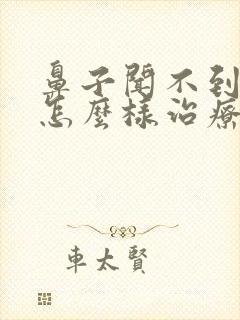 鼻子聞不到
怎麼樣治療
車太賢